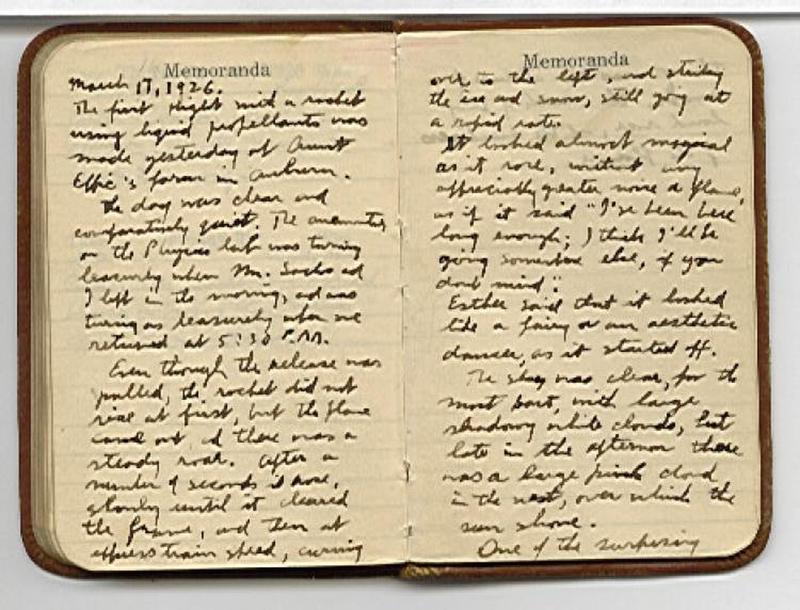 Memoranda
March 17, 1926.
The first flight with a rocket
using liquid propellants was
made yesterday at Aunt
Effie's farm in Auburn.
The day was clear and
comparatively quiet. The anemometer
on the Physics lab was turning
leisurely when Mr. Sachs and
I left in the morning, and was
turning as leisurely when we
returned at 5:30 P.M.
Even though the release was
pulled, the rocket did not
rise at first, but the flame
came out, and there was a
steady roar. After a
number of seconds it rose,
slowly until it cleared
the frame, and then at
express train speed, curving
Memoranda
over to the left, and striking
the ice and snow, still going at
a rapid rate.
It looked almost magical
as it rose, without any
appreciably greater noise or flame,
as if it said "I've been here
long enough; I think I'll be
going somewhere else, if you
don't mind".
Esther said that it looked
like a fairy or an aesthetic
dancer, as it started off.
The sky was clear, for the
most part, with large
shadowy white clouds, but
late in the afternoon there
was a large pink cloud
in the west, over which the
sun shone.
One of the surprising